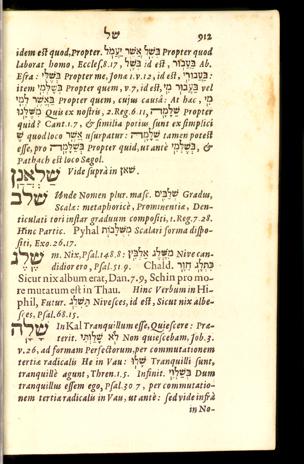 של 912
idem est quod, Propter. בְּשֶׁל אֲשֶׁר יַעֲמֹל Propter quod
laborat homo, Eccles. 8. 17, בְּשֶׁל id est, בַּעֲבוּר. Ab.
Esra: בְּשֶׁלִּי Propter me, Jona 1. v. 12, id est, בַּעֲבוּרִי:
item בְּשֶׁלְּמִי Propter quem, v. 7, id est, בַּעֲבוּר מִי vel
בַּאֲשֶׁר לְמִי Propter quem, cujus causâ: At hac, מִי
מִשֶּׁלָּנוּ Quis ex nostris, 2. Reg. 6. 11, שַׁלָּמָה Propter
quid? Cant. 1. 7, & similia potius sunt ex simplici
שֶׁ quod loco אֲשֶׁר usurpatur: שַׁלָּמָה tamen potest
esse, pro בְּשֶׁלְּמָה Propter quid, ut antè בְּשֶׁלְּמִי, &
Pathach est loco Segol.
שַׁלְאֲנָן Vide suprà in שאן.
שלב Unde Nomen plur. masc. שְׁלַבִּים Gradus,
Scalæ: metaphoricè, Prominentiæ, Den-
ticulati tori instar graduum compositi, 1. Reg. 7. 28.
Hinc Partic. Pyhal מְשֻׁלָּבוֹת Scalari forma dispo-
siti, Exo. 26. 17.
שֶׁלֶג m. Nix, Psal. 148. 8: מִשֶּׁלֶג אַלְבִּין Nive can-
didior ero, Psal. 51. 9. Chald. כִּתְלַג חִוָּר
Sicut nix albumerat, Dan. 7. 9, Schin pro mo-
re mutatum est in Thau. Hinc Verbum in Hi-
phil, Futur. תַּשְׁלֵג Nivesces, id est, Sicut nix albe-
sces, Psal. 68. 15.
שָׁלָה In Kal Tranquillum esse, Quiescere: Præ-
terit. לֹא שָׁלַוְתִּי Non quiescebam, Job. 3.
v. 26, ad formam Perfectorum, per commutationem
tertiæ radicalis He in Vau: שָׁלוּ Tranquilli sunt,
tranquillè agunt, Thren. 1. 5. Infinit. בְּשַׁלְוִי Dum
tranquillus essem ego, Psal. 30. 7, per commutatio-
nem tertiæ radicalis in Vau, ut antè: sed vide infrà
in No-